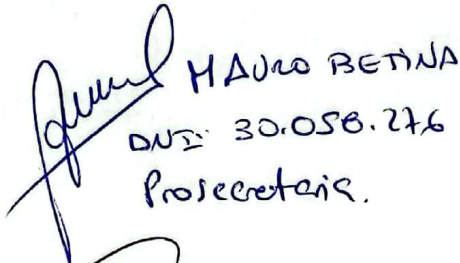 MAURO BETINA
DNI: 30.058.276
Prosecretaria.